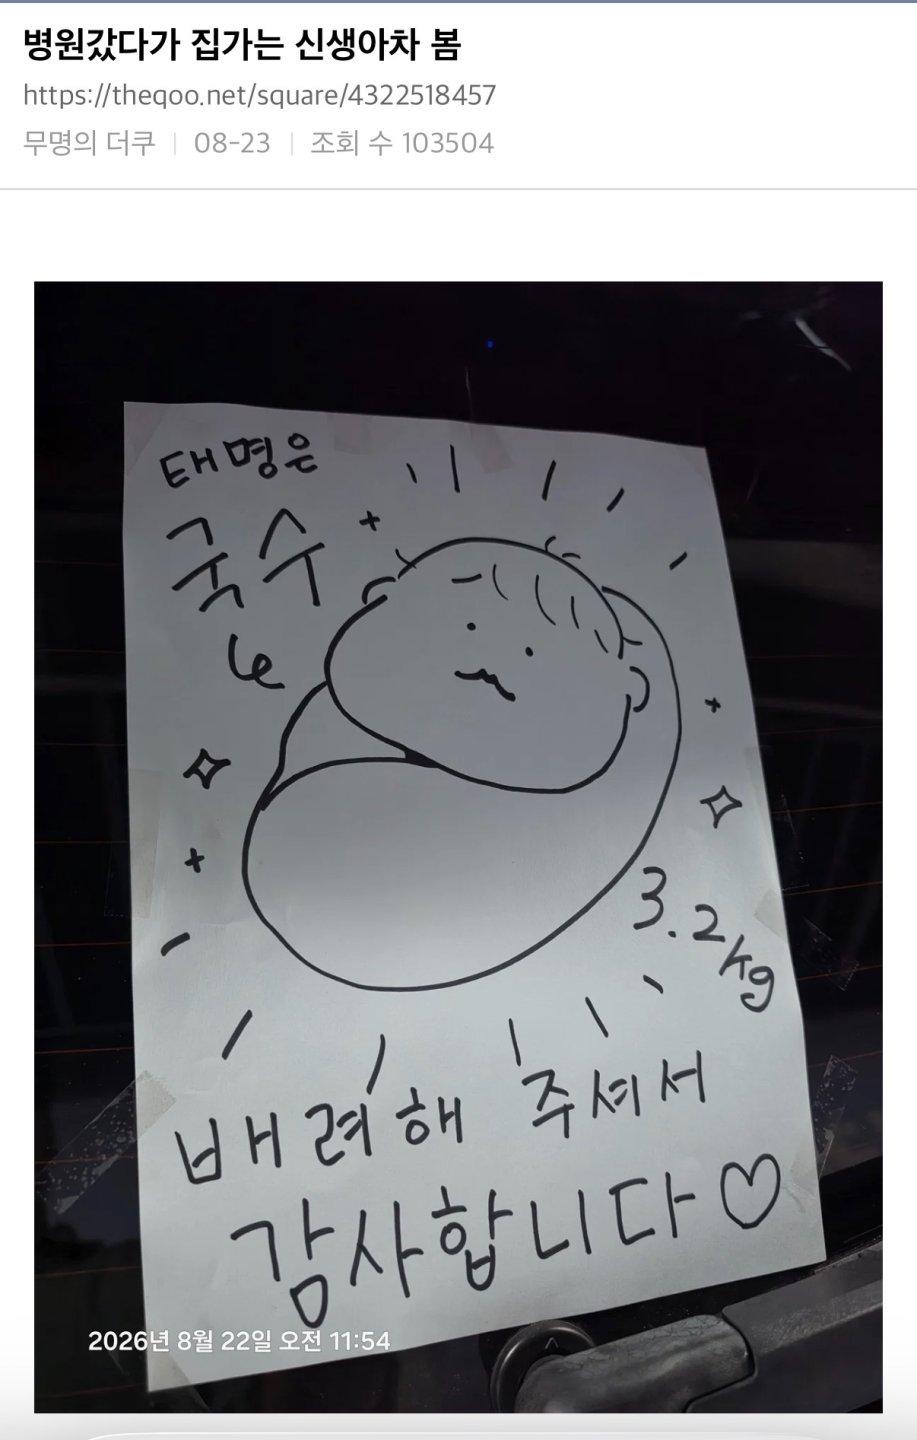 병원갔다가 집가는 신생아차 봄
https://theqoo.net/square/4322518457
무명의 더쿠 | 08-23 | 조회 수 103504
태명은
국수
3.2kg
배려해 주셔서
감사합니다♡
2026년 8월 22일 오전 11:54